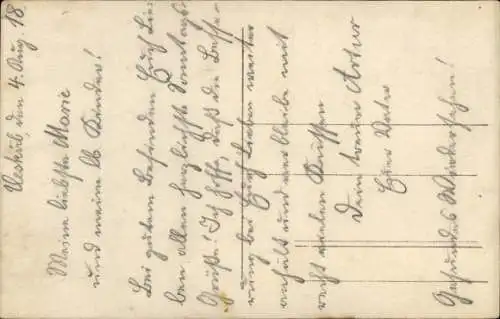 Üsküb, den 4. Aug. 18.
Meine liebste Marie
und meine lb. Kinder!
Bei gutem Befinden Euch Lie-
ben allen herzlichste Sonntags-
Grüße! Ich hoffe, daß die Besse-
rung bei Euch Lieben weiter
anhält und verbleibe mit
recht vielen Küssen
Dein treuer Artur
Euer Vater
Gesundes Wiedersehen!